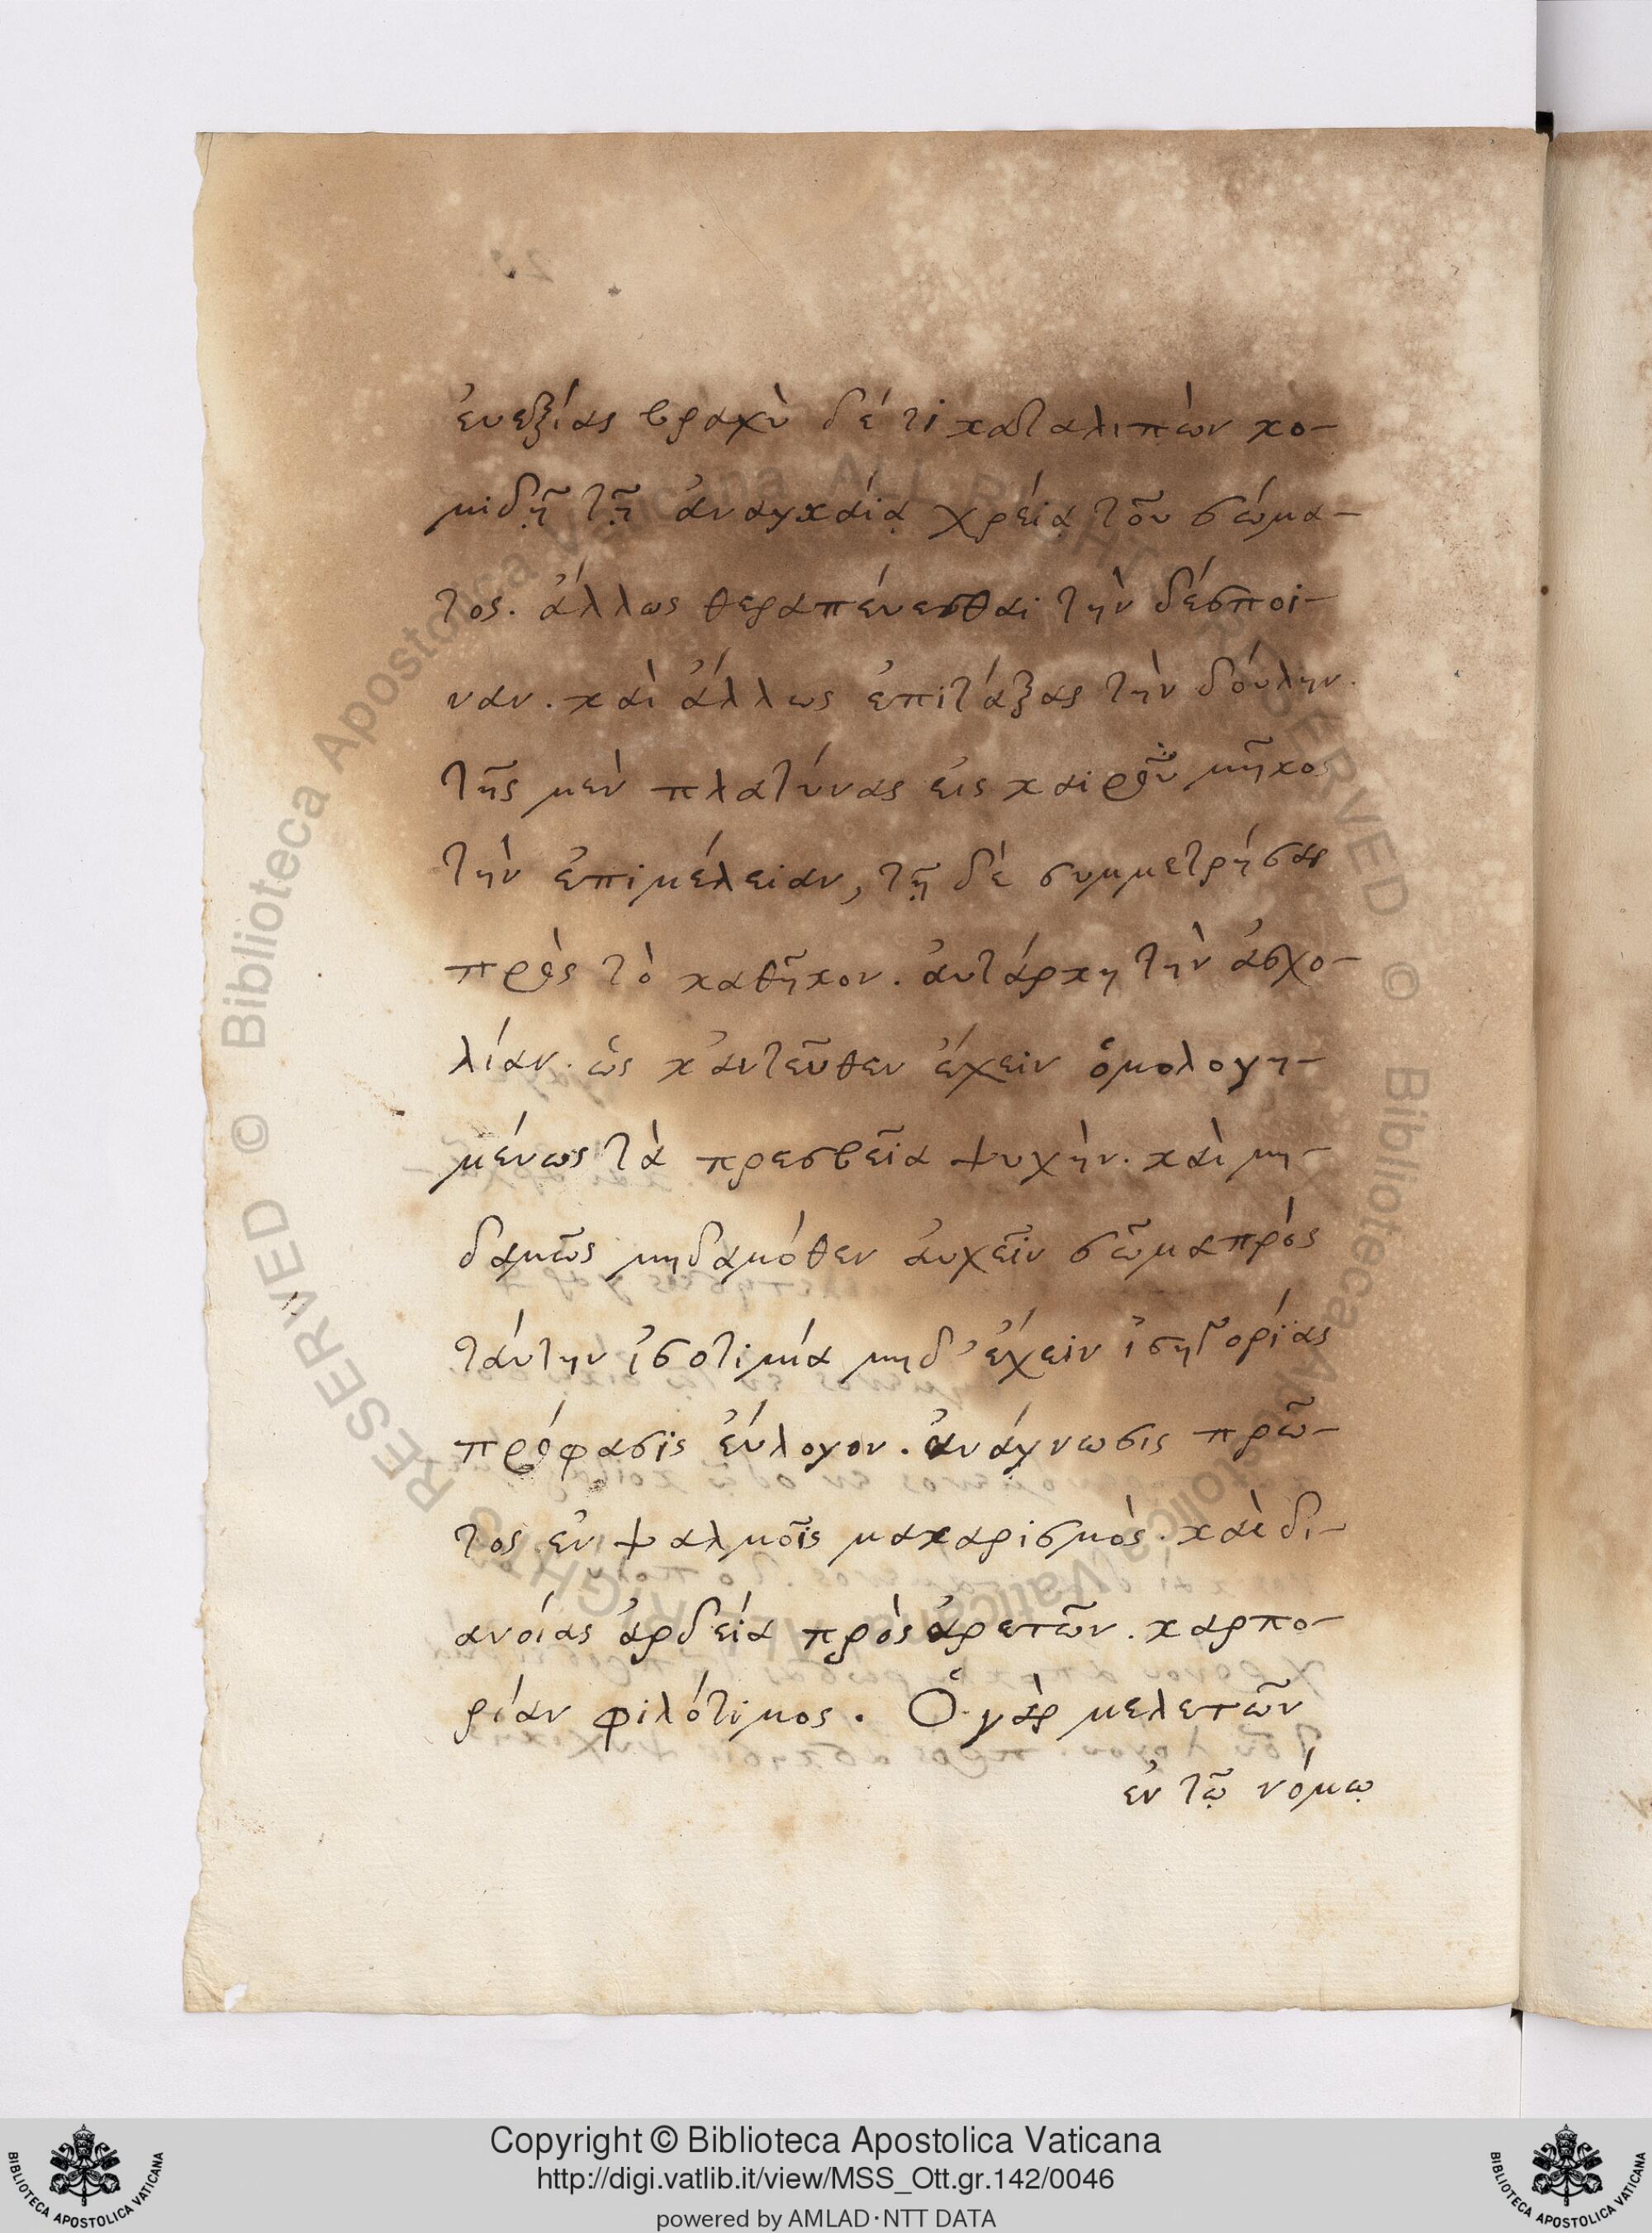 ἐυεξίας βραχὺ δέ τι καταλιπὼν κο-
μιδῇ τῇ ἀναγκάιᾳ χρείᾳ τοῦ σώμα-
τος. ἄλλως θεραπέυεσθαι τὴν δέσποι-
ναν. καὶ ἄλλως ἐπιτάξας τὴν δόυλην.
τῆς μὲν πλατύνας εἰς καιροῦ μῆκος
τὴν ἐπιμέλειαν, τῇ δὲ συμμετρήσας
πρὸς τὸ καθῆκον. ἀυτάρκη τὴν ἀσχο-
λίαν. ὡς κἀντεῦθεν ἔχειν ὁμολογη-
μένως τὰ πρεσβεῖα ψυχὴν. καὶ μη-
δαμῶς μηδαμόθεν ἀυχεῖν σῶμα πρὸς
τάυτην ἰσοτιμία μηδ' ἔχειν ἰσηγορίας
πρόφασις ἔυλογον. ἀνάγνωσις πρῶ-
τος ἐν ψαλμοῖς μακαρισμὸς. καὶ δι-
ανόιας ἀρδεία πρὸς ἀρετῶν. καρπο-
ρίαν φιλότιμος. Ὁ γὰρ μελετῶν
ἐν τῷ νόμῳ
Copyright © Biblioteca Apostolica Vaticana
http://digi.vatlib.it/view/MSS_Ott.gr.142/0046
powered by AMLAD·NTT DATA
BIBLIOTECA APOSTOLICA VATICANA
BIBLIOTECA APOSTOLICA VATICANA